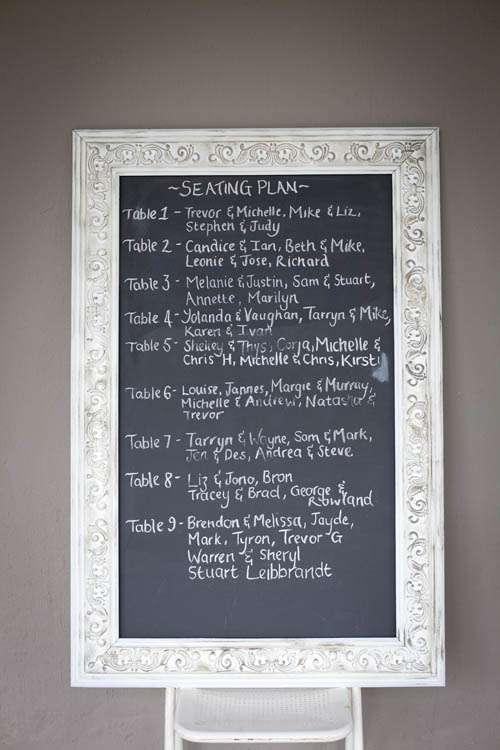 ~SEATING PLAN~
Table 1 - Trevor & Michelle, Mike & Liz,
Stephen & Judy
Table 2 - Candice & Ian, Beth & Mike,
Leonie & Jose, Richard
Table 3 - Melanie & Justin, Sam & Stuart,
Annette, Marilyn
Table 4 - Yolanda & Vaughan, Tarryn & Mike,
Karen & Ivan
Table 5 - Shelley & Thys, Corja, Michelle &
Chris H, Michelle & Chris, Kirsti
Table 6 - Louise, Jannes, Margie & Murray,
Michelle & Andrew, Natasha &
Trevor
Table 7 - Tarryn & Wayne, Sam & Mark,
Jen & Des, Andrea & Steve
Table 8 - Liz & Jono, Bron
Tracey & Brad, George &
Rowland
Table 9 - Brendon & Melissa, Jayde,
Mark, Tyron, Trevor G
Warren & Sheryl
Stuart Leibbrandt